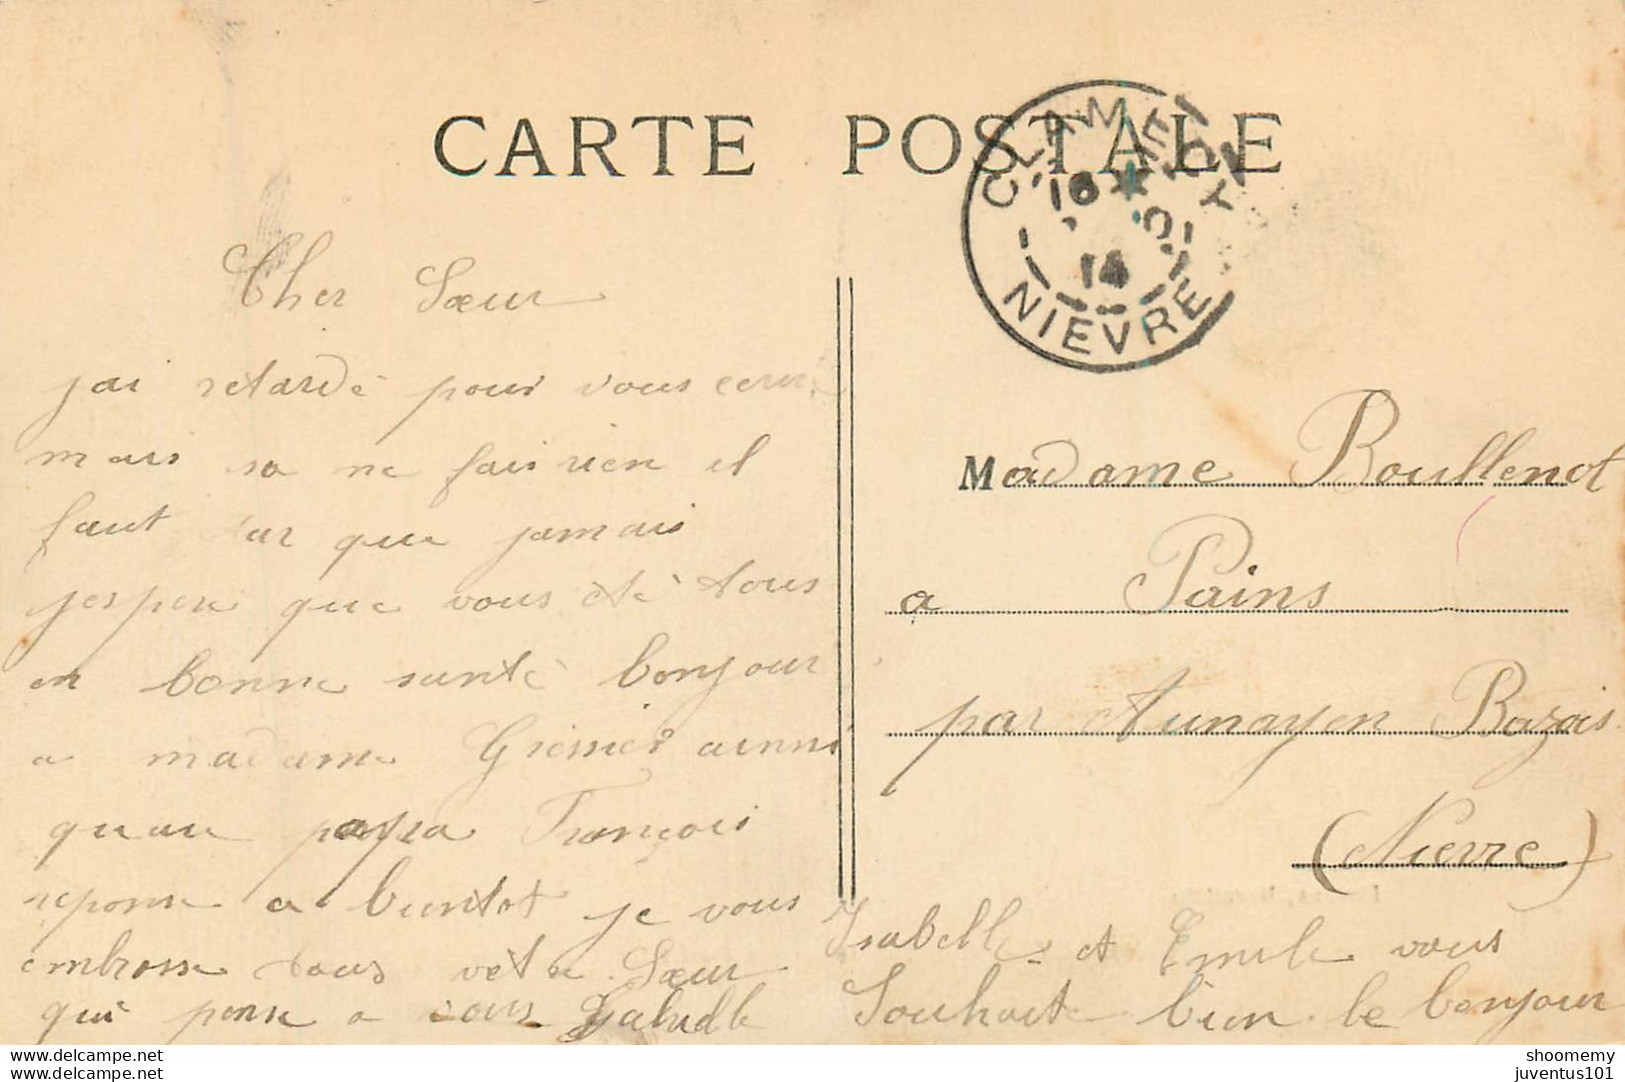 CARTE POSTALE
CLAMECY
16
14
NIEVRE
Cher Sœur
jai retardé pour vous ecrire
mais sa ne fais rien il
faut tar que jamais
jesper que vous eté tous
en bonne santé bonjour
a madame Gressier ainsi
quau papa François
reponse a bientot je vous
embrasse tous votre Sœur
qui pense a vous
Madame Boullenot
a Pains
par Aunayen Bazois
(Nievre)
Isabelle et Emile vous
Souhaite bien le bonjour
www.delcampe.net
www.delcampe.net
shoomemy
juventus101